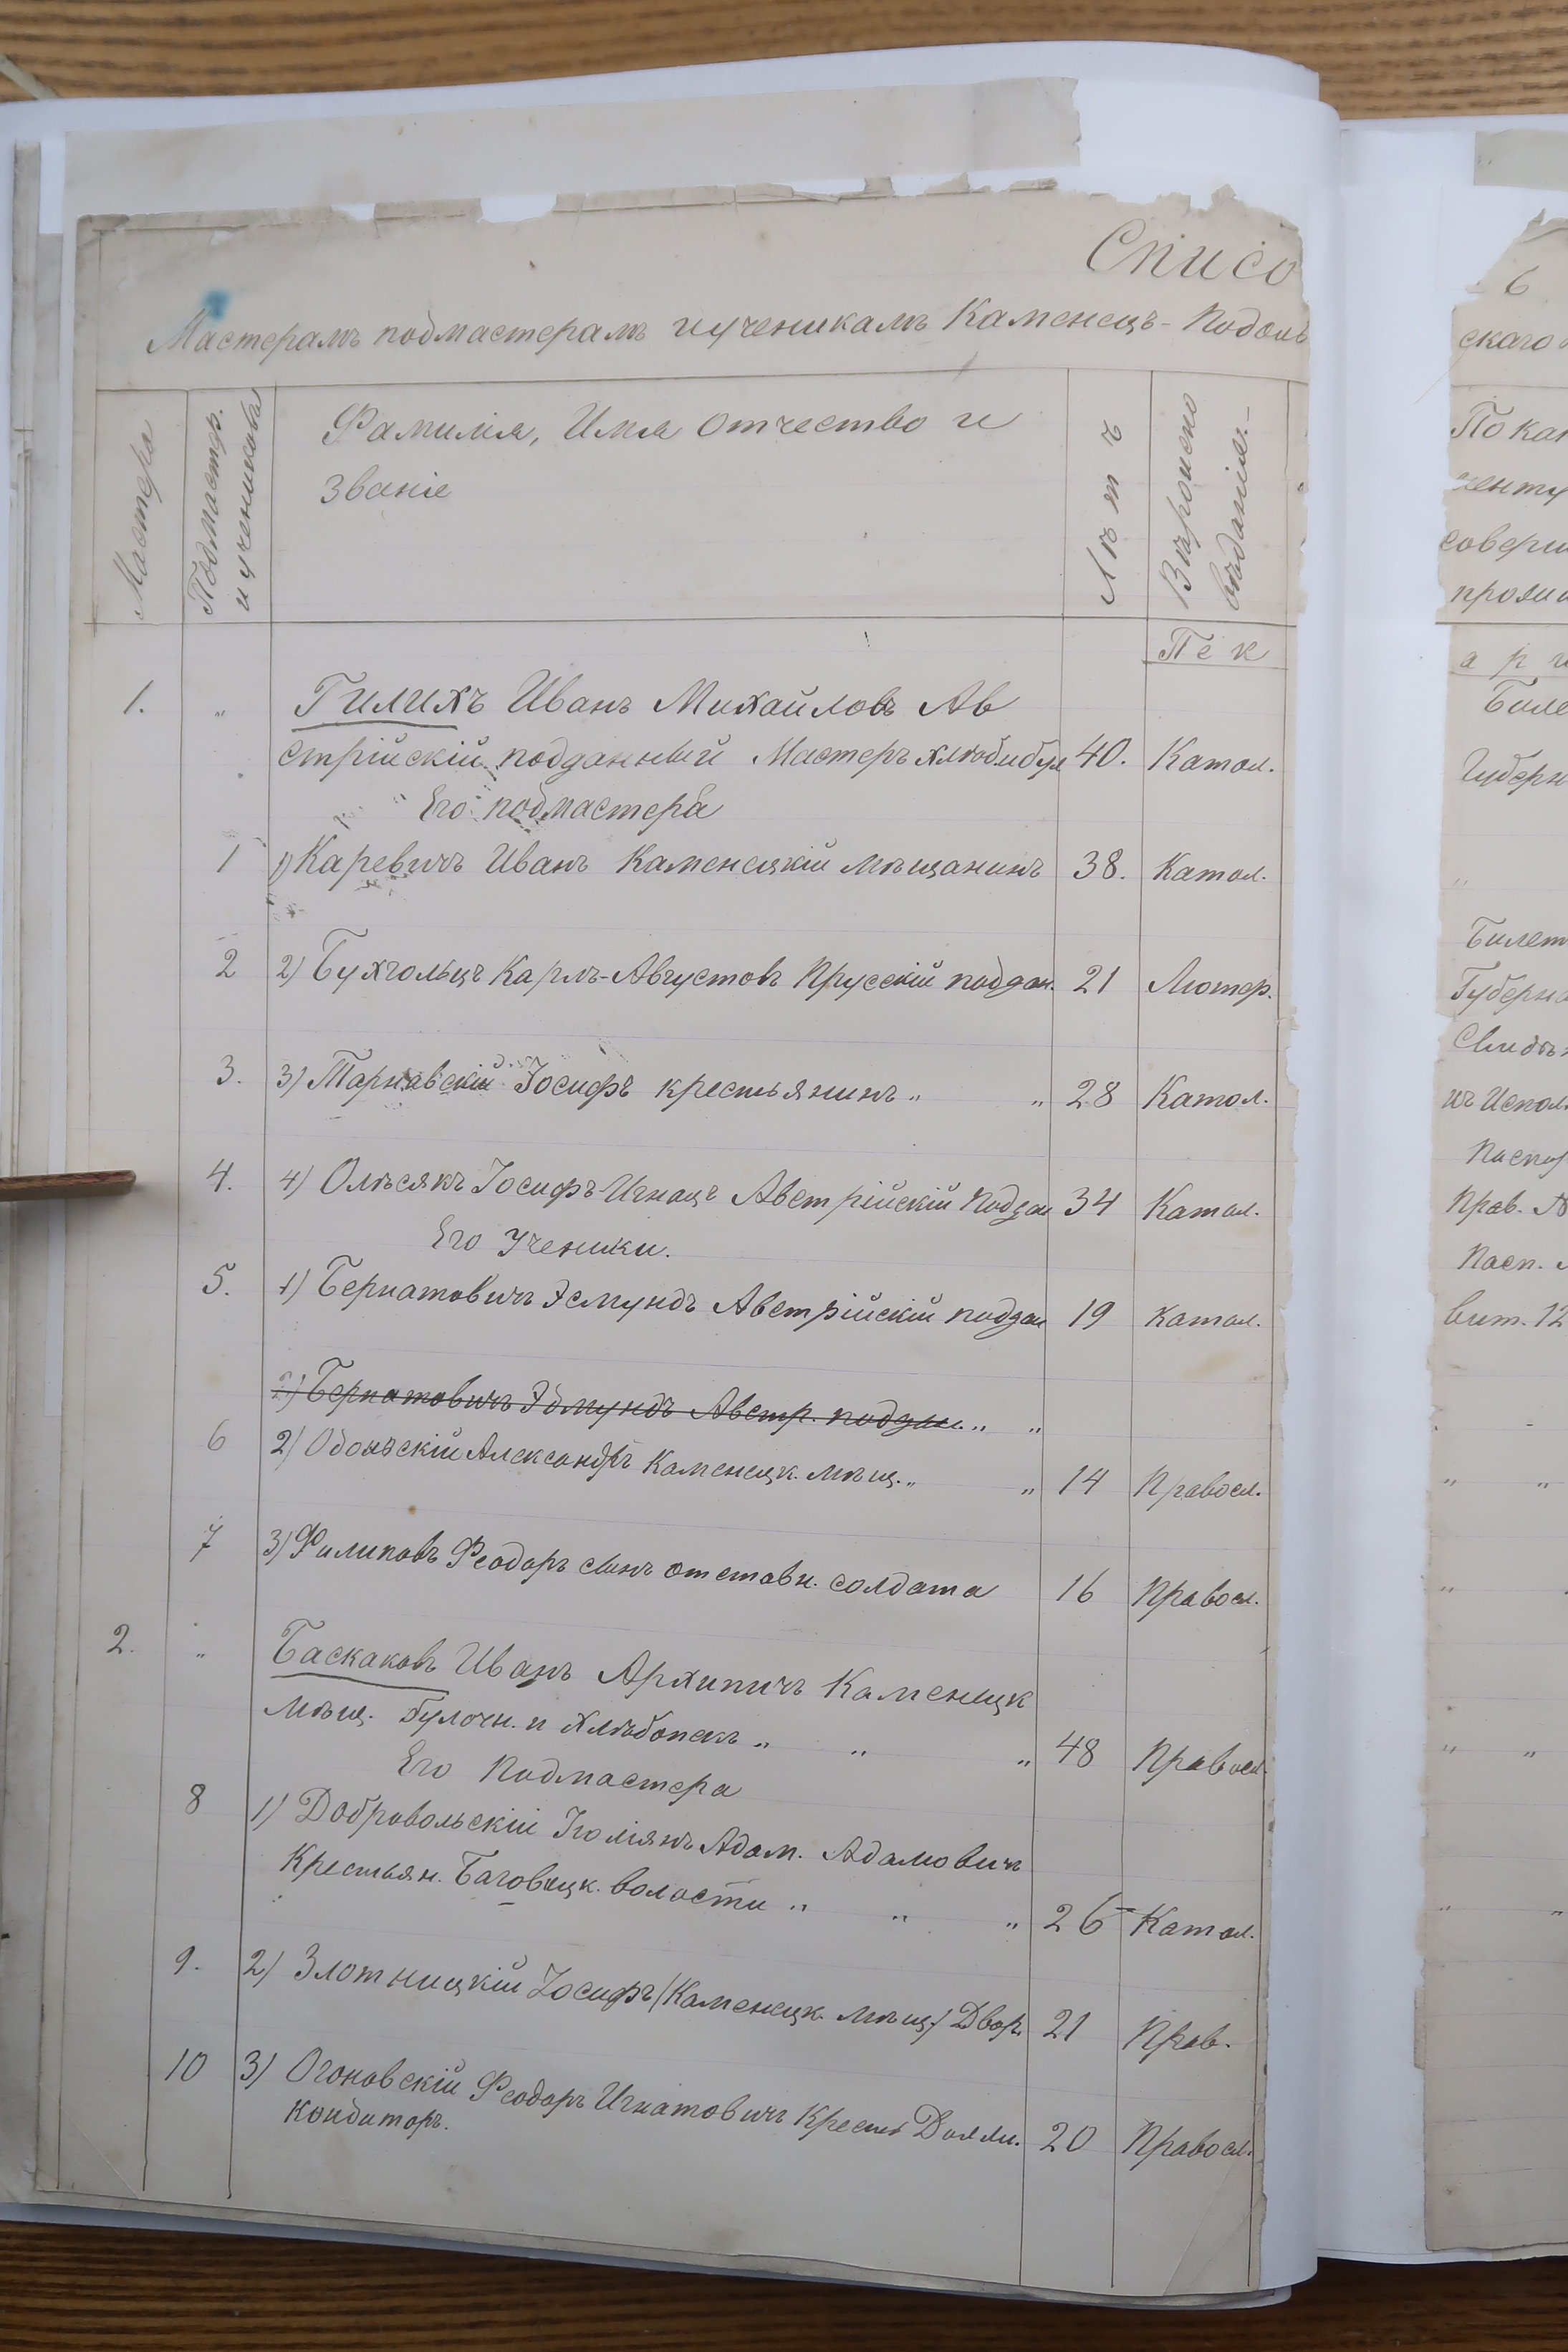 Списо
Мастерамъ подмастерамъ и ученикамъ Каменецъ-Подоль
Мастера
Подмастр. и учениковъ
Фамилія, Имя Отчество и
Званіе
Лѣтъ
Вѣроиспо
вѣданіе.
Пек
1. „ Гилихъ Иванъ Михайловъ Ав
стрійскій подданный Мастеръ 40. Катол.
Его подмастера
1 1) Каревичъ Иванъ Каменецкій мѣщанинъ 38. Катол.
2 2) Бухгольцъ Карлъ-Августовъ Прусскій поддан. 21 Лютер.
3. 3) Тарнавскій Іосифъ крестьянинъ „ „ 28 Катол.
4. 4) Олѣсякъ Іосифъ-Игнацъ Австрійскій Поддан 34 Катол.
Его Ученики.
5. 1) Бернатовичъ Эдмундъ Австрійскій поддан 19 Катол.
2) Бернатовичъ Эдмундъ Австр. поддан. „ „
6 2) Александръ Каменецк. мѣщ. „ „ 14 Правосл.
7 3) Филиповъ Феодоръ сынъ отставн. солдата 16 Правосл.
2. „ Баскаковъ Иванъ Архипичъ Каменецк
мѣщ. Булочн. и Хлѣбопекъ „ „ „ 48 Правосл.
Его Подмастера
8 1) Добровольскій Адам. Адамовичъ
Крестьян. Баговецк. волости „ „ „ 26 Катол.
9. 2) Злотницкій Іосифъ (Каменецк. мѣщ.) Двор. 21 Прав.
10 3) Огоновскій Феодоръ Игнатовичъ 20 Правосл.
Кондиторъ.
6
скаго
По как
менту
соверш
промы
Биле
Губерн
„
Билет
Губерна
Свидѣт
Прав.
Пасп.
„ „
„
„ „
„ „